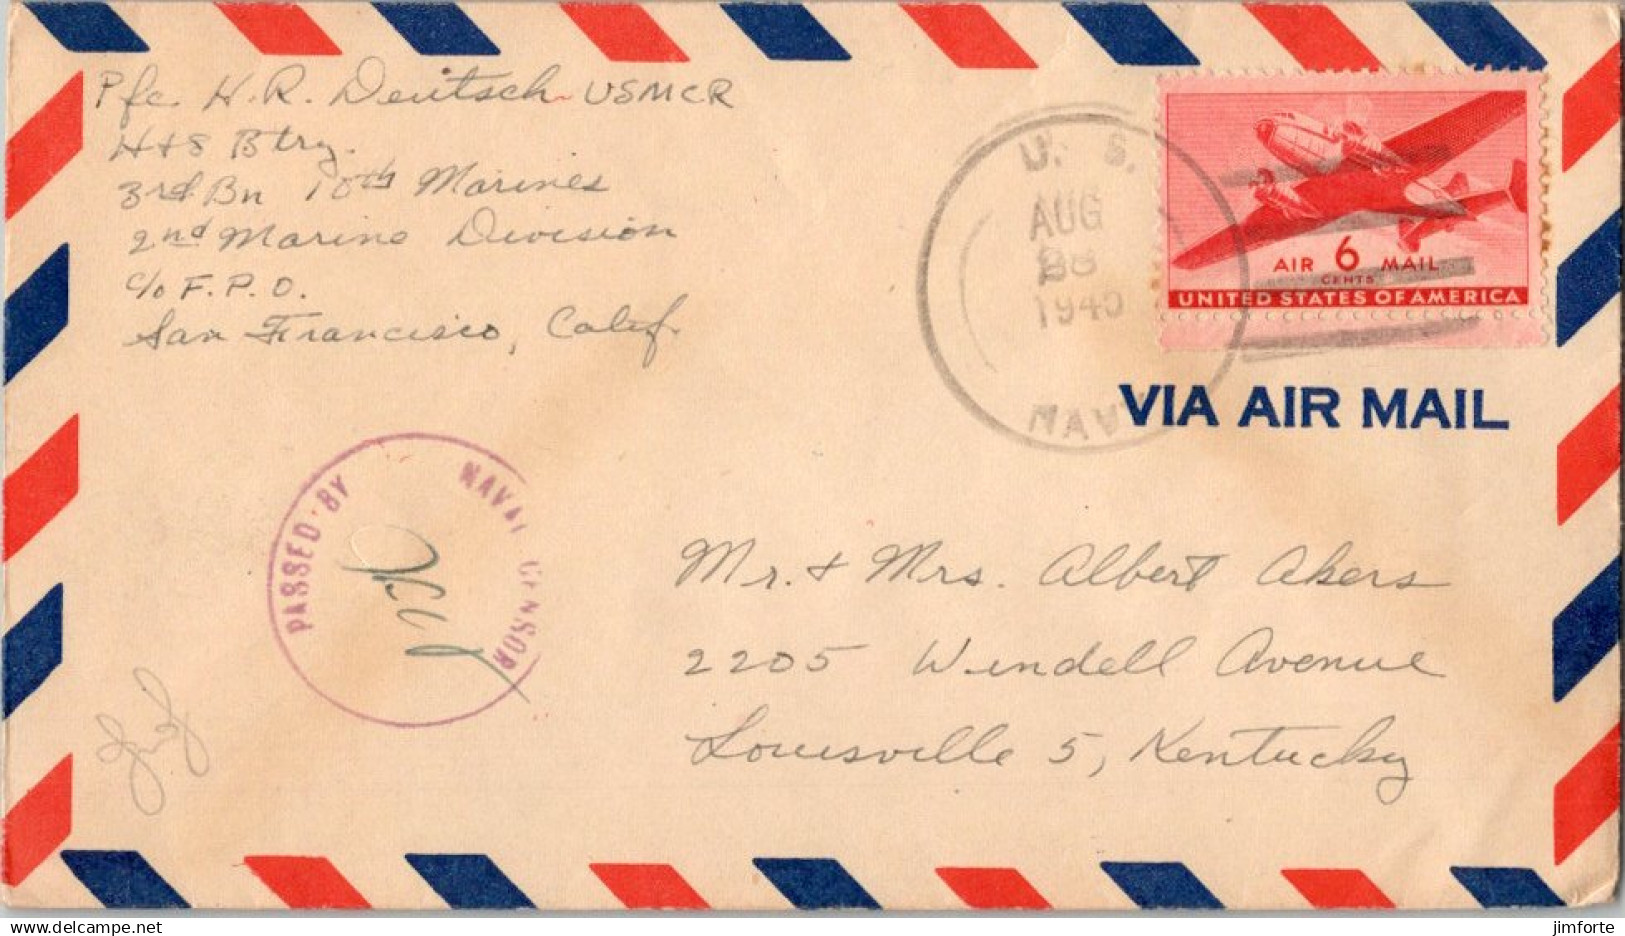 Pfc. H. R. Deutsch USMCR
H+S Btry.
3rd Bn 10th Marines
2nd Marine Division
c/o F.P.O.
San Francisco, Calif.
U. S.
AUG
28
1945
NAVY
AIR 6 MAIL
CENTS
UNITED STATES OF AMERICA
VIA AIR MAIL
PASSED BY
NAVAL CENSOR
Mr. + Mrs. Albert Akers
2205 Windell Avenue
Louisville 5, Kentucky
jimforte